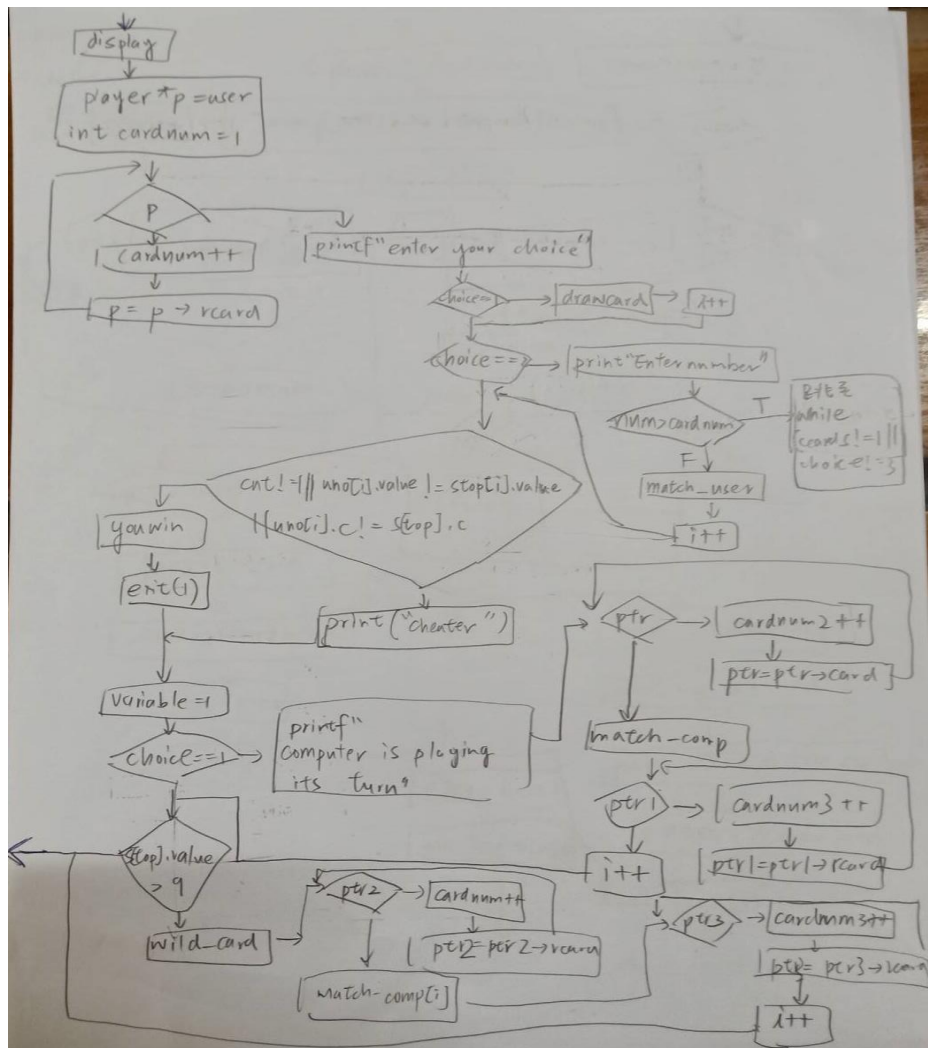 display
player *p = user
int cardnum = 1
p
cardnum++
p = p → rcard
printf "enter your choice"
choice=1
drawcard
i++
choice==
print "Enter number"
num>cardnum
T
while
choice!=3
F
match_user
i++
cnt!=1|| uno[i].value != stop[i].value
||uno[i].c! = s[top].c
youwin
exit(1)
print ("cheater")
variable=1
choice==1
printf"
computer is playing
its turn"
ptr
cardnum2++
ptr=ptr→card
match-comp
ptr1
cardnum3++
ptr1=ptr1→rcard
i++
s[top].value
> 9
wild_card
ptr2
cardnum++
ptr2=ptr2→rcard
match-comp[i]
ptr3
cardnum3++
ptr3→rcard
i++